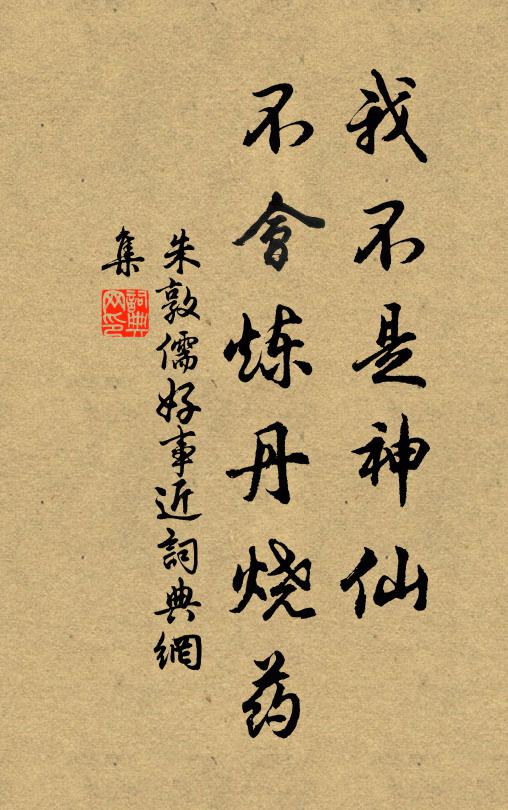 我不是神仙
不會炼丹烧药
朱敦儒好事近詞典網
集
詞典
网印